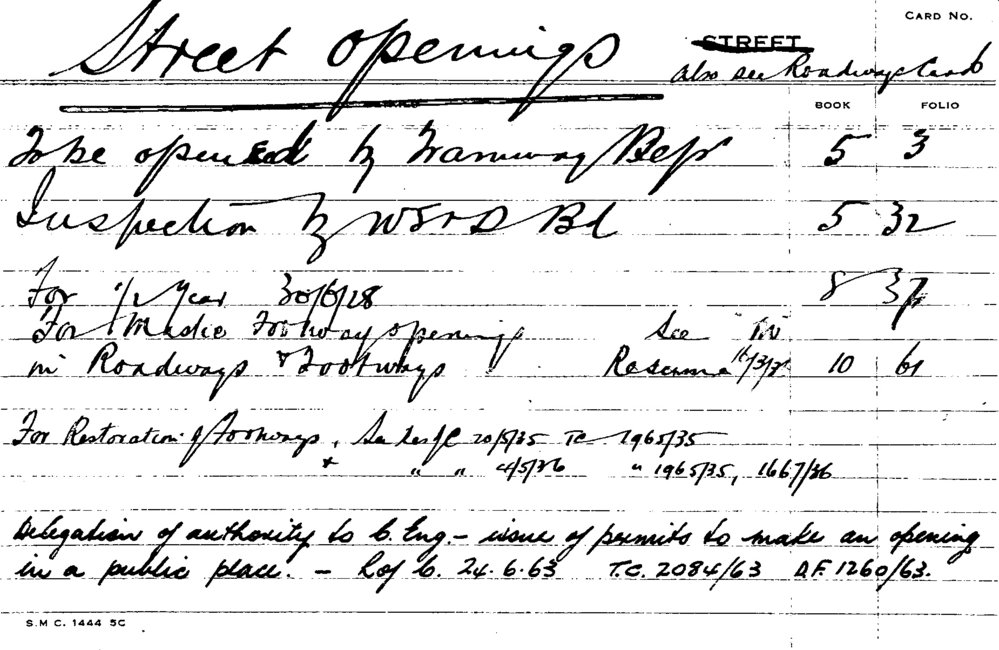 CARD No.
Street openings STREET
Also see Roadways Cards
BOOK FOLIO
To be opened by Tramway Dept 5 3
Inspection by W S & D Bd 5 32
For 1/2 Year 30/6/28 8 37
For Mastic Footway openings See
in Roadways & Footways 10 61
For Restoration of Footways, See Res of C 20/5/35 TC 1965/35
+ " " 4/5/36 " 1965/35, 1667/36
Delegation of authority to C. Eng. - issue of permits to make an opening
in a public place. - R of C. 24.6.63 T.C. 2084/63 D.F. 1260/63.
S.M.C. 1444 5C